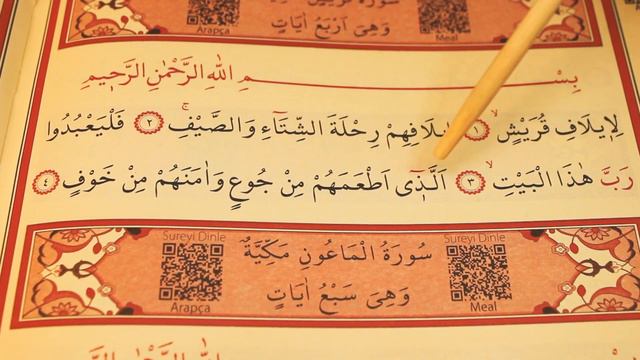 Arapça وَهِىَ اَرْبَعُ اٰيَاتٍ Meal
بِسْمِ اللّٰهِ الرَّحْمٰنِ الرَّحٖيمِ
لِاٖيلَافِ قُرَيْشٍ ۙ ﴿١﴾ اٖيلَافِهِمْ رِحْلَةَ الشِّتَٓاءِ وَالصَّيْفِ ۚ ﴿٢﴾ فَلْيَعْبُدُوا
رَبَّ هٰذَا الْبَيْتِ ۙ ﴿٣﴾ اَلَّذٖٓى اَطْعَمَهُمْ مِنْ جُوعٍ وَاٰمَنَهُمْ مِنْ خَوْفٍ ﴿٤﴾
Sureyi Dinle سُورَةُ الْمَاعُونِ مَكِّيَّةٌ Sureyi Dinle
Arapça وَهِىَ سَبْعُ اٰيَاتٍ Meal